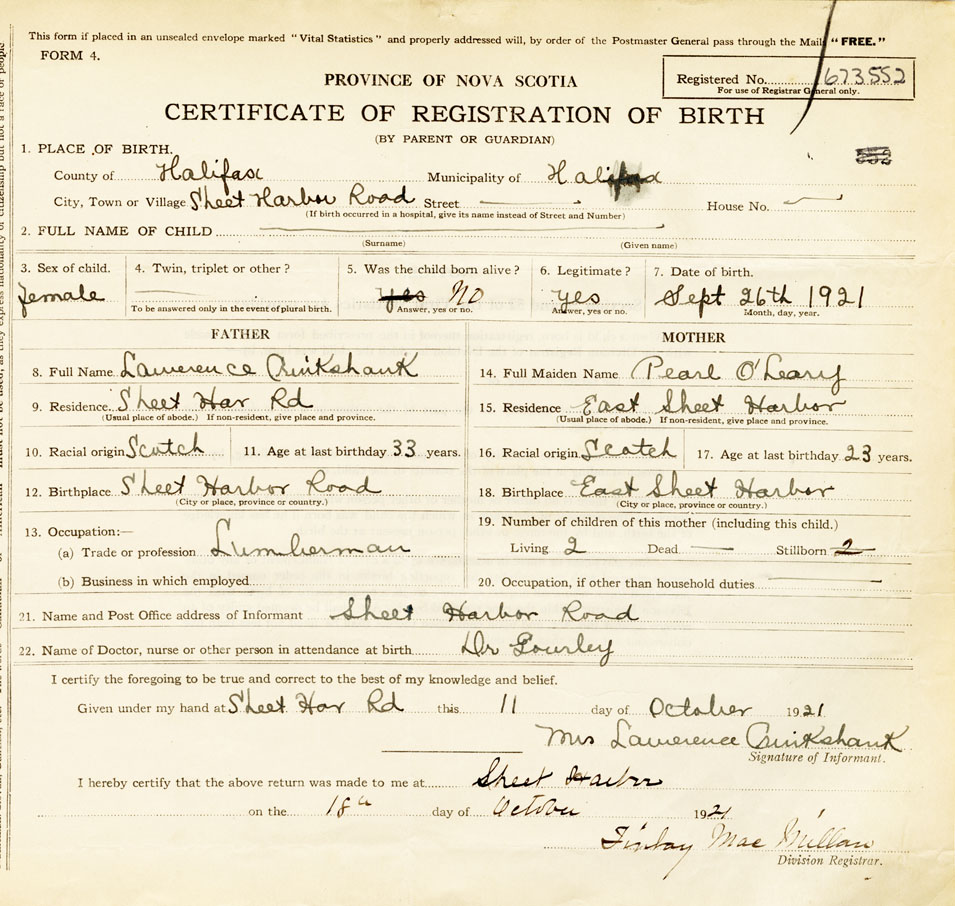 This form if placed in an unsealed envelope marked "Vital Statistics" and properly addressed will, by order of the Postmaster General pass through the Mails "FREE."
FORM 4.
PROVINCE OF NOVA SCOTIA
Registered No. 673552
For use of Registrar General only.
CERTIFICATE OF REGISTRATION OF BIRTH
(BY PARENT OR GUARDIAN)
1. PLACE OF BIRTH.
County of Halifax Municipality of Halifax
City, Town or Village Sheet Harbor Road Street House No.
(If birth occurred in a hospital, give its name instead of Street and Number)
2. FULL NAME OF CHILD
(Surname) (Given name)
3. Sex of child. 4. Twin, triplet or other? 5. Was the child born alive? 6. Legitimate? 7. Date of birth.
female yes No yes Sept 26th 1921
To be answered only in the event of plural birth. Answer, yes or no. Answer, yes or no. Month, day, year.
FATHER MOTHER
8. Full Name Lawerence Cruikshank 14. Full Maiden Name Pearl O'Leary
9. Residence Sheet Har Rd 15. Residence East Sheet Harbor
(Usual place of abode.) If non-resident, give place and province. (Usual place of abode.) If non-resident, give place and province.
10. Racial origin Scotch 11. Age at last birthday 33 years. 16. Racial origin Scotch 17. Age at last birthday 23 years.
12. Birthplace Sheet Harbor Road 18. Birthplace East Sheet Harbor
(City or place, province or country.) (City or place, province or country.)
13. Occupation:— 19. Number of children of this mother (including this child.)
(a) Trade or profession Lumberman Living 2 Dead Stillborn 2
(b) Business in which employed 20. Occupation, if other than household duties
21. Name and Post Office address of Informant Sheet Harbor Road
22. Name of Doctor, nurse or other person in attendance at birth Dr Gourley
I certify the foregoing to be true and correct to the best of my knowledge and belief.
Given under my hand at Sheet Har Rd this 11 day of October 1921
Mrs Lawerence Cruikshank
Signature of Informant.
I hereby certify that the above return was made to me at Sheet Harbor
on the 18th day of October 1921
Finlay Mac Millan
Division Registrar.